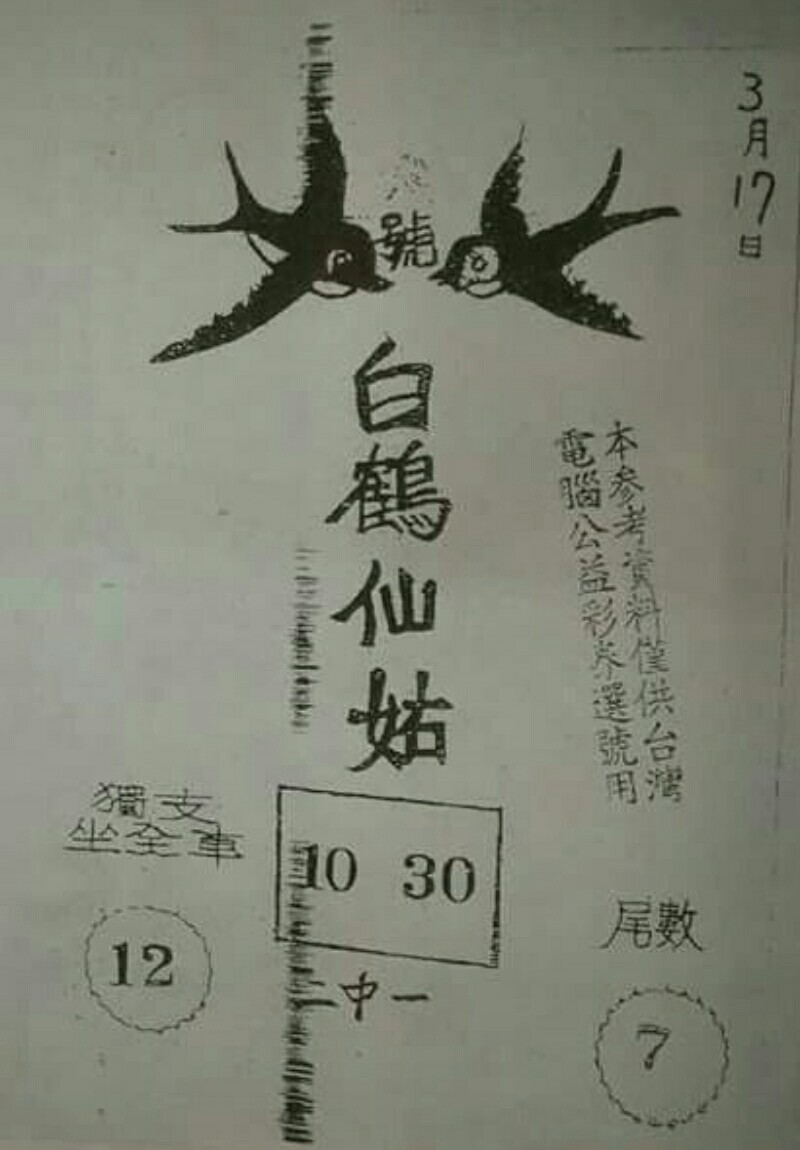 3月17日
號
白鶴仙姑
本參考資料僅供台灣
電腦公益彩券選號用
獨支
坐全車
12
10 30
二中一
尾數
7